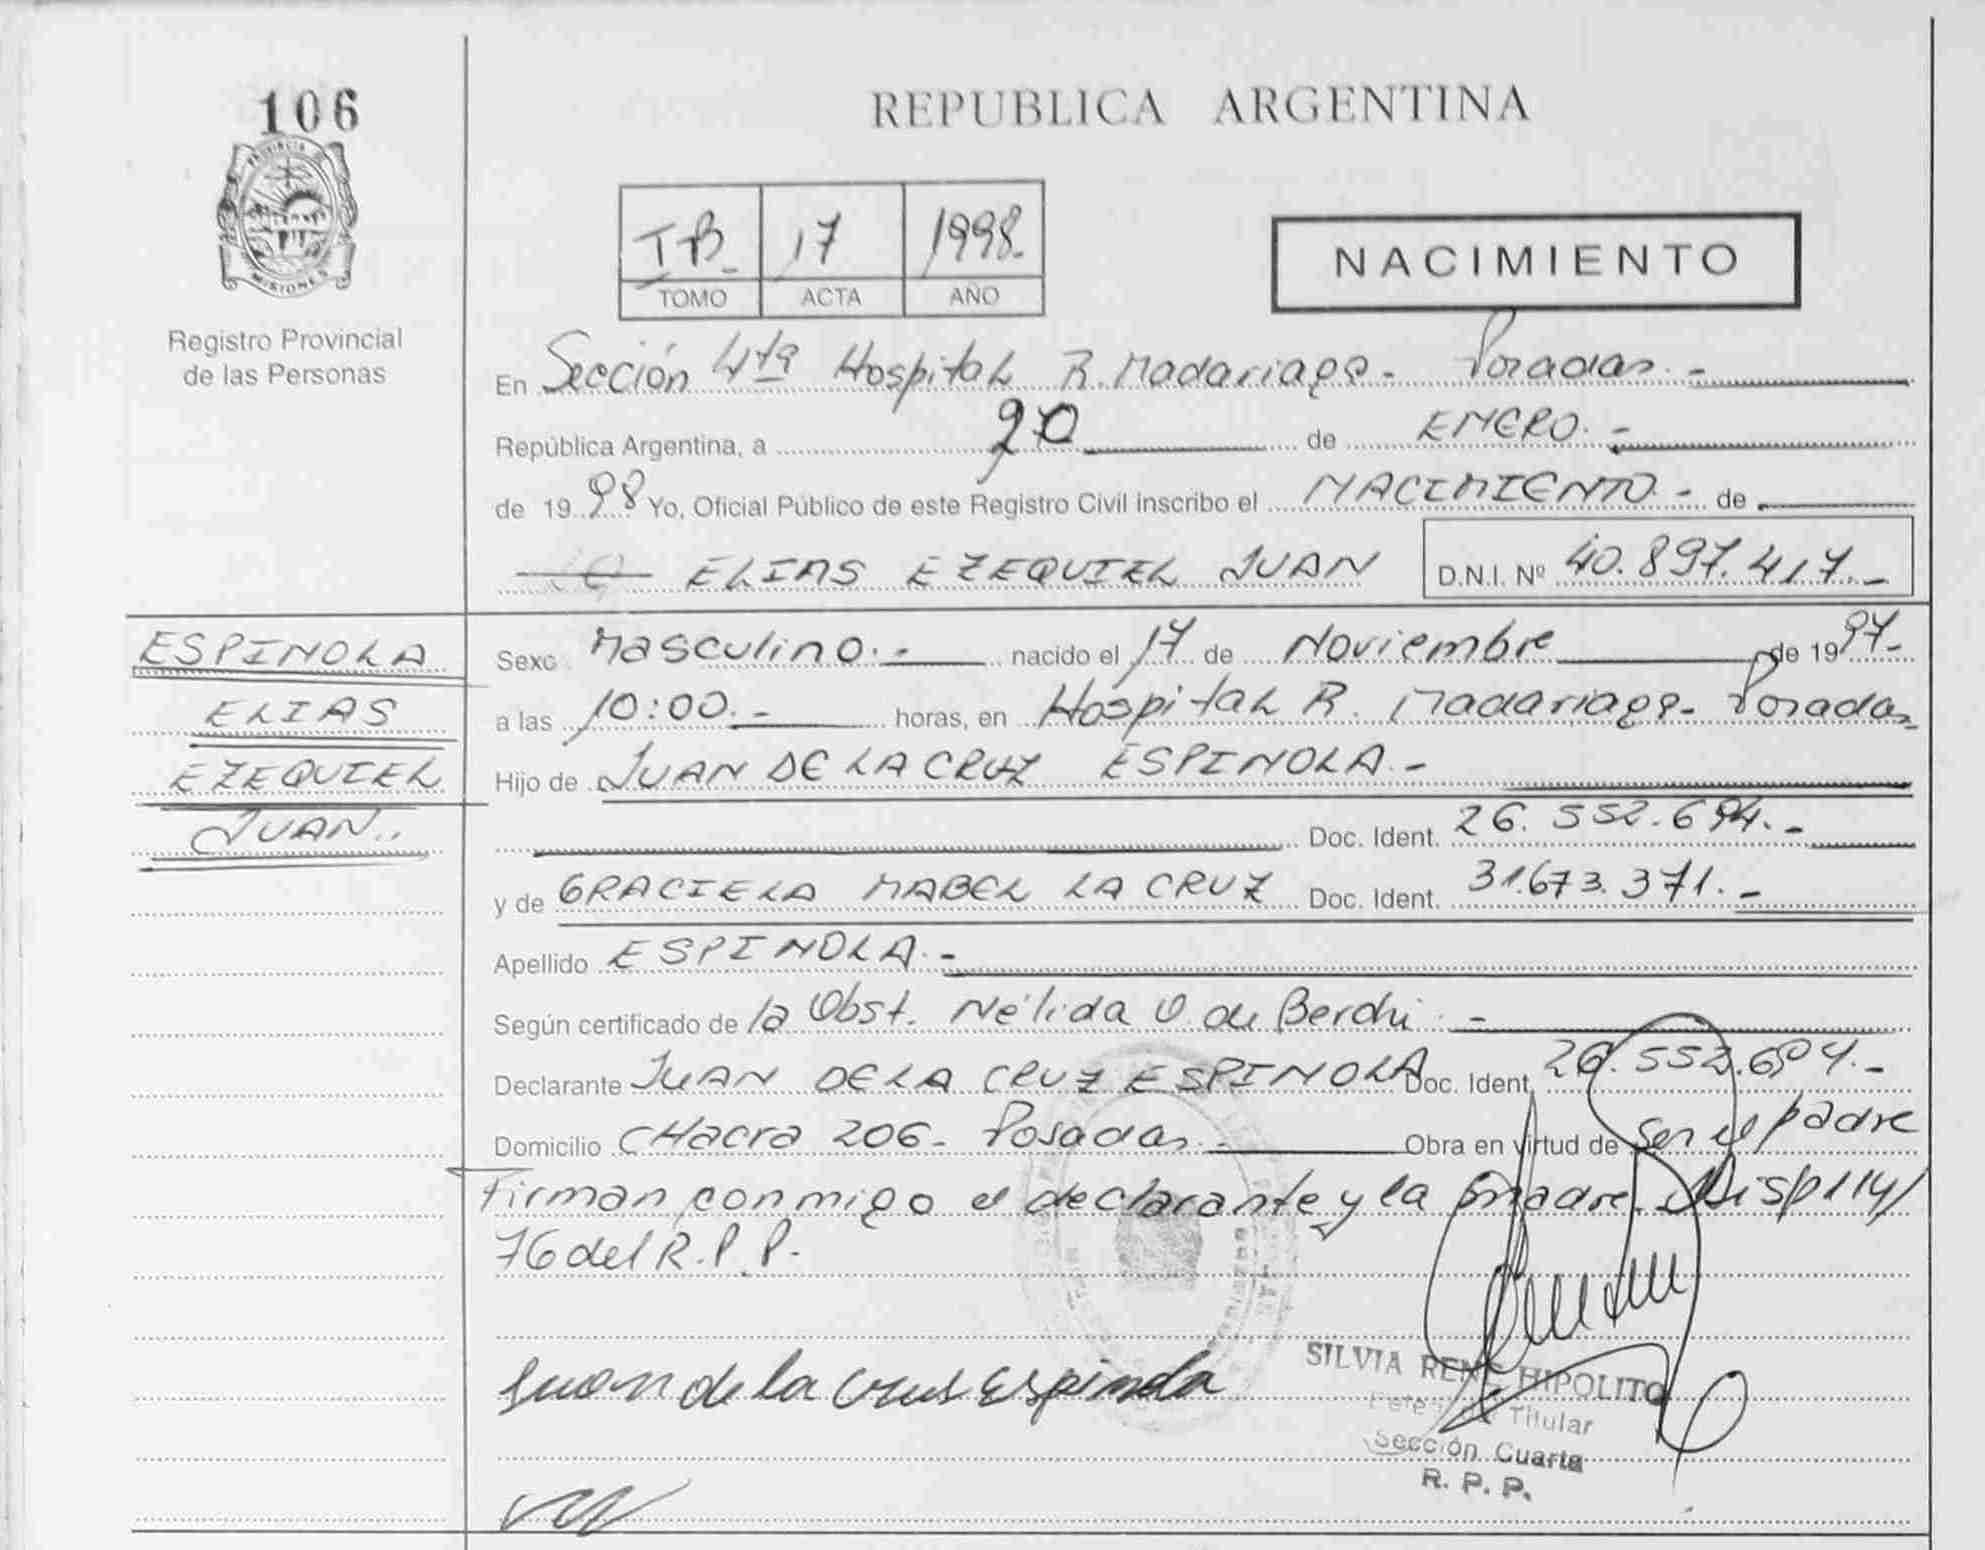 106
PROVINCIA DE
MISIONES
Registro Provincial
de las Personas
REPUBLICA ARGENTINA
TB 17 1998.-
TOMO ACTA AÑO
NACIMIENTO
En Sección 4ta Hospital R. Madariaga - Posadas.-
República Argentina, a 20 de ENERO.-
de 1998 Yo, Oficial Público de este Registro Civil inscribo el NACIMIENTO.- de
ELIAS EZEQUIEL JUAN D.N.I. Nº 40.897.417.-
ESPINOLA
ELIAS
EZEQUIEL
JUAN..
Sexo Masculino.- nacido el 17 de Noviembre de 1997.-
a las 10:00.- horas, en Hospital R. Madariaga - Posadas
Hijo de JUAN DE LA CRUZ ESPINOLA.-
Doc. Ident. 26.552.694.-
y de GRACIELA MABEL LA CRUZ Doc. Ident. 31.673.371.-
Apellido ESPINOLA.-
Según certificado de la Obst. Nélida O. de Berchi.-
Declarante JUAN DE LA CRUZ ESPINOLA Doc. Ident. 26.552.694.-
Domicilio CHacra 206 - Posadas.- Obra en virtud de Ser el padre
Firman conmigo el declarante y la madre. Disp 114/
76 del R.P.P.-
Juan de la Crus Espinola
SILVIA RENE HIPOLITO
Titular
Sección Cuarta
R. P. P.